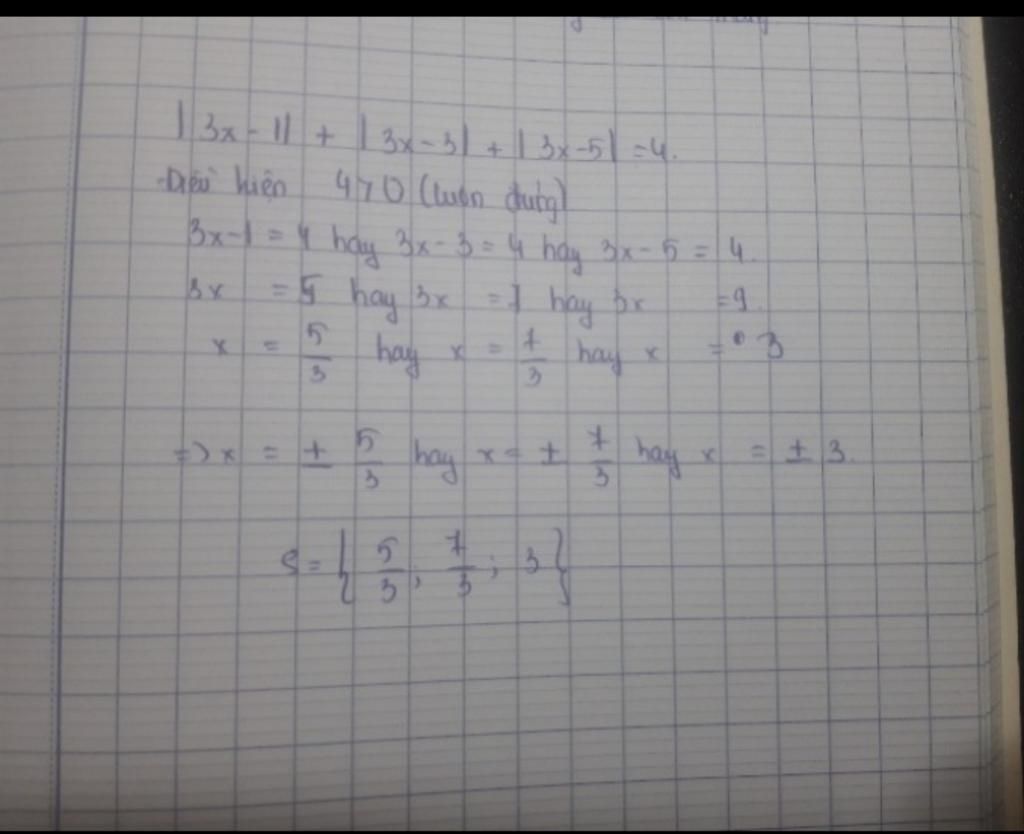 |3x - 1| + |3x - 3| + |3x - 5| = 4.
Điều kiện 4 > 0 (luôn đúng)
3x - 1 = 4 hay 3x - 3 = 4 hay 3x - 5 = 4.
3x = 5 hay 3x = 7 hay 3x = 9.
x = 5/3 hay x = 7/3 hay x = 3
=> x = ± 5/3 hay x = ± 7/3 hay x = ± 3.
S = { 5/3 ; 7/3 ; 3 }